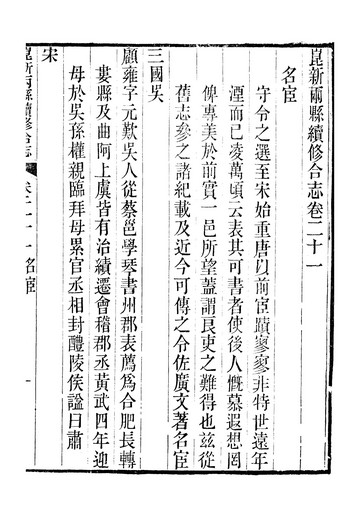 崑新兩縣續修合志卷二十一
名宦
守令之選至宋始重唐以前宦蹟寥寥非特世遠年
湮而已凌萬頃云表其可書者使後人慨慕遐想罔
俾專美於前實一邑所望蓋謂良吏之難得也兹從
舊志參之諸紀載及近今可傳之令佐廣文著名宦
三國吳
顧雍字元歎吳人從蔡邕學琴書州郡表薦爲合肥長轉
婁縣及曲阿上虞皆有治績遷會稽郡丞黃武四年迎
母於吳孫權親臨拜母累官丞相封醴陵侯諡曰肅
宋
崑新兩縣續修合志 卷二十一 名宦 一